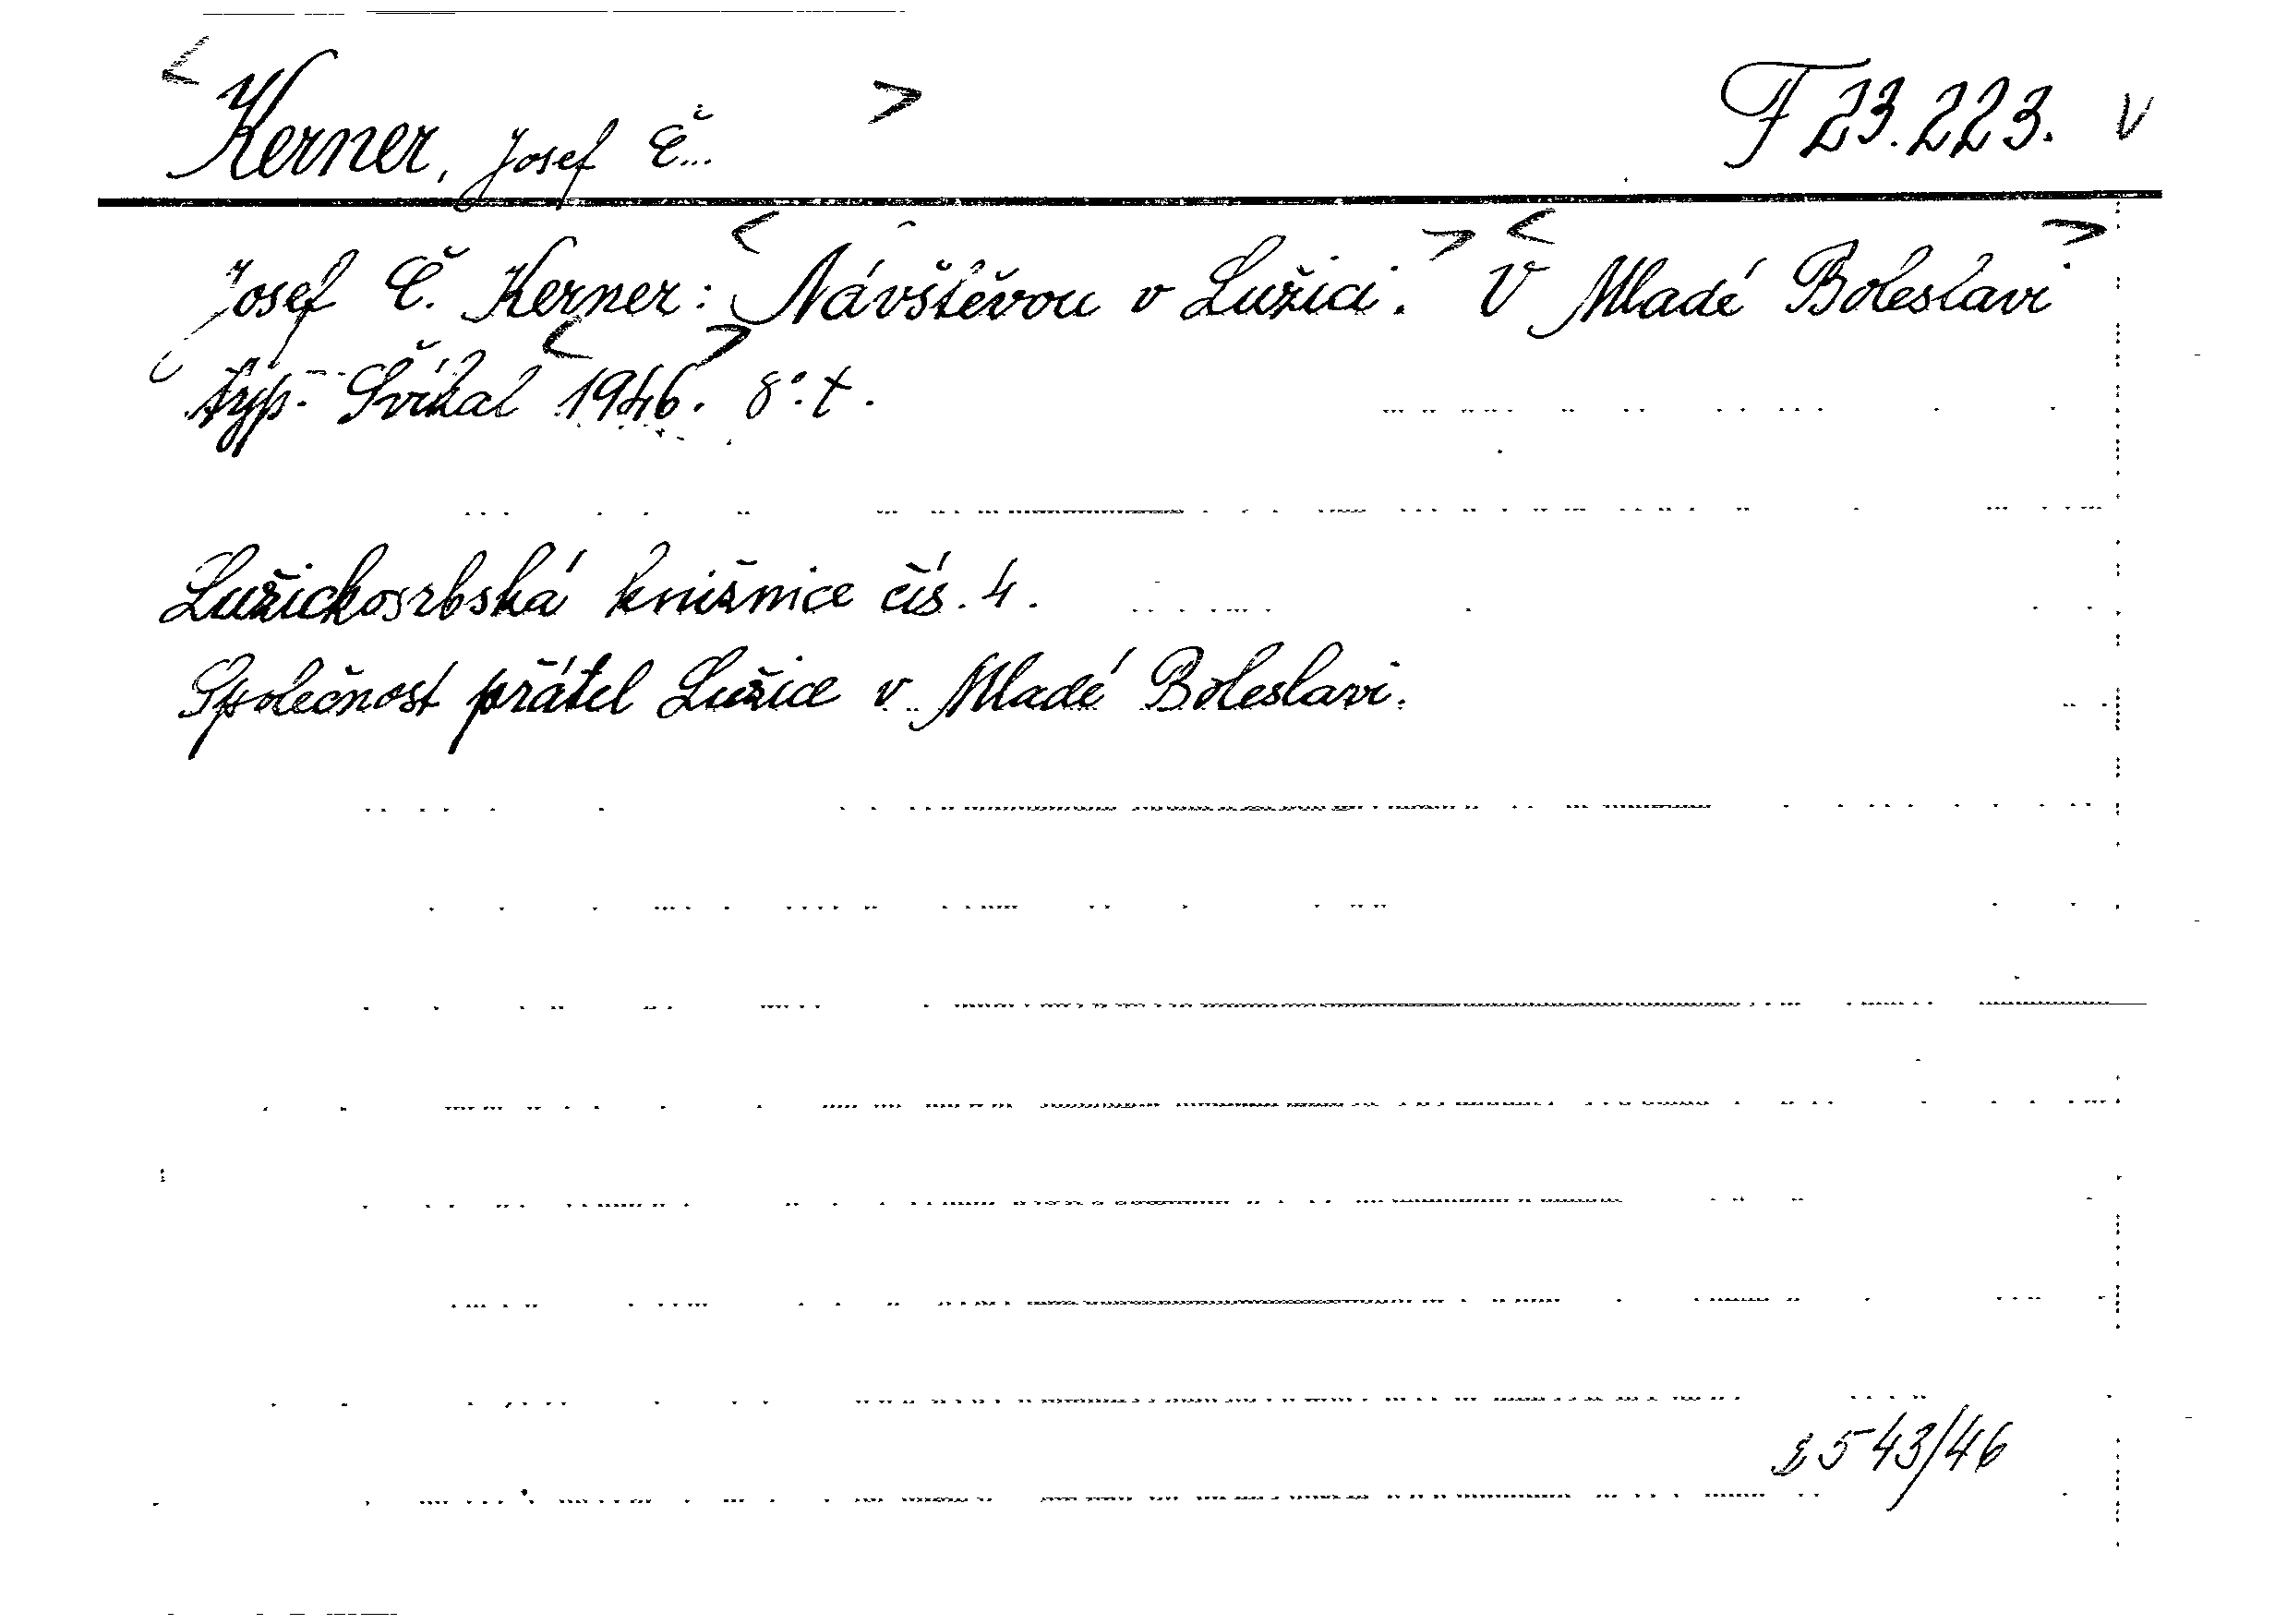 < Kerner, Josef Č... > F 23.223. v
Josef Č. Kerner: < Návštěvou v Lužici. > < V Mladé Boleslavi >
typ. Švikal < 1946. > 8°. t.
Lužickosrbská knižnice čís. 4.
Společnost přátel Lužice v Mladé Boleslavi.
543/46